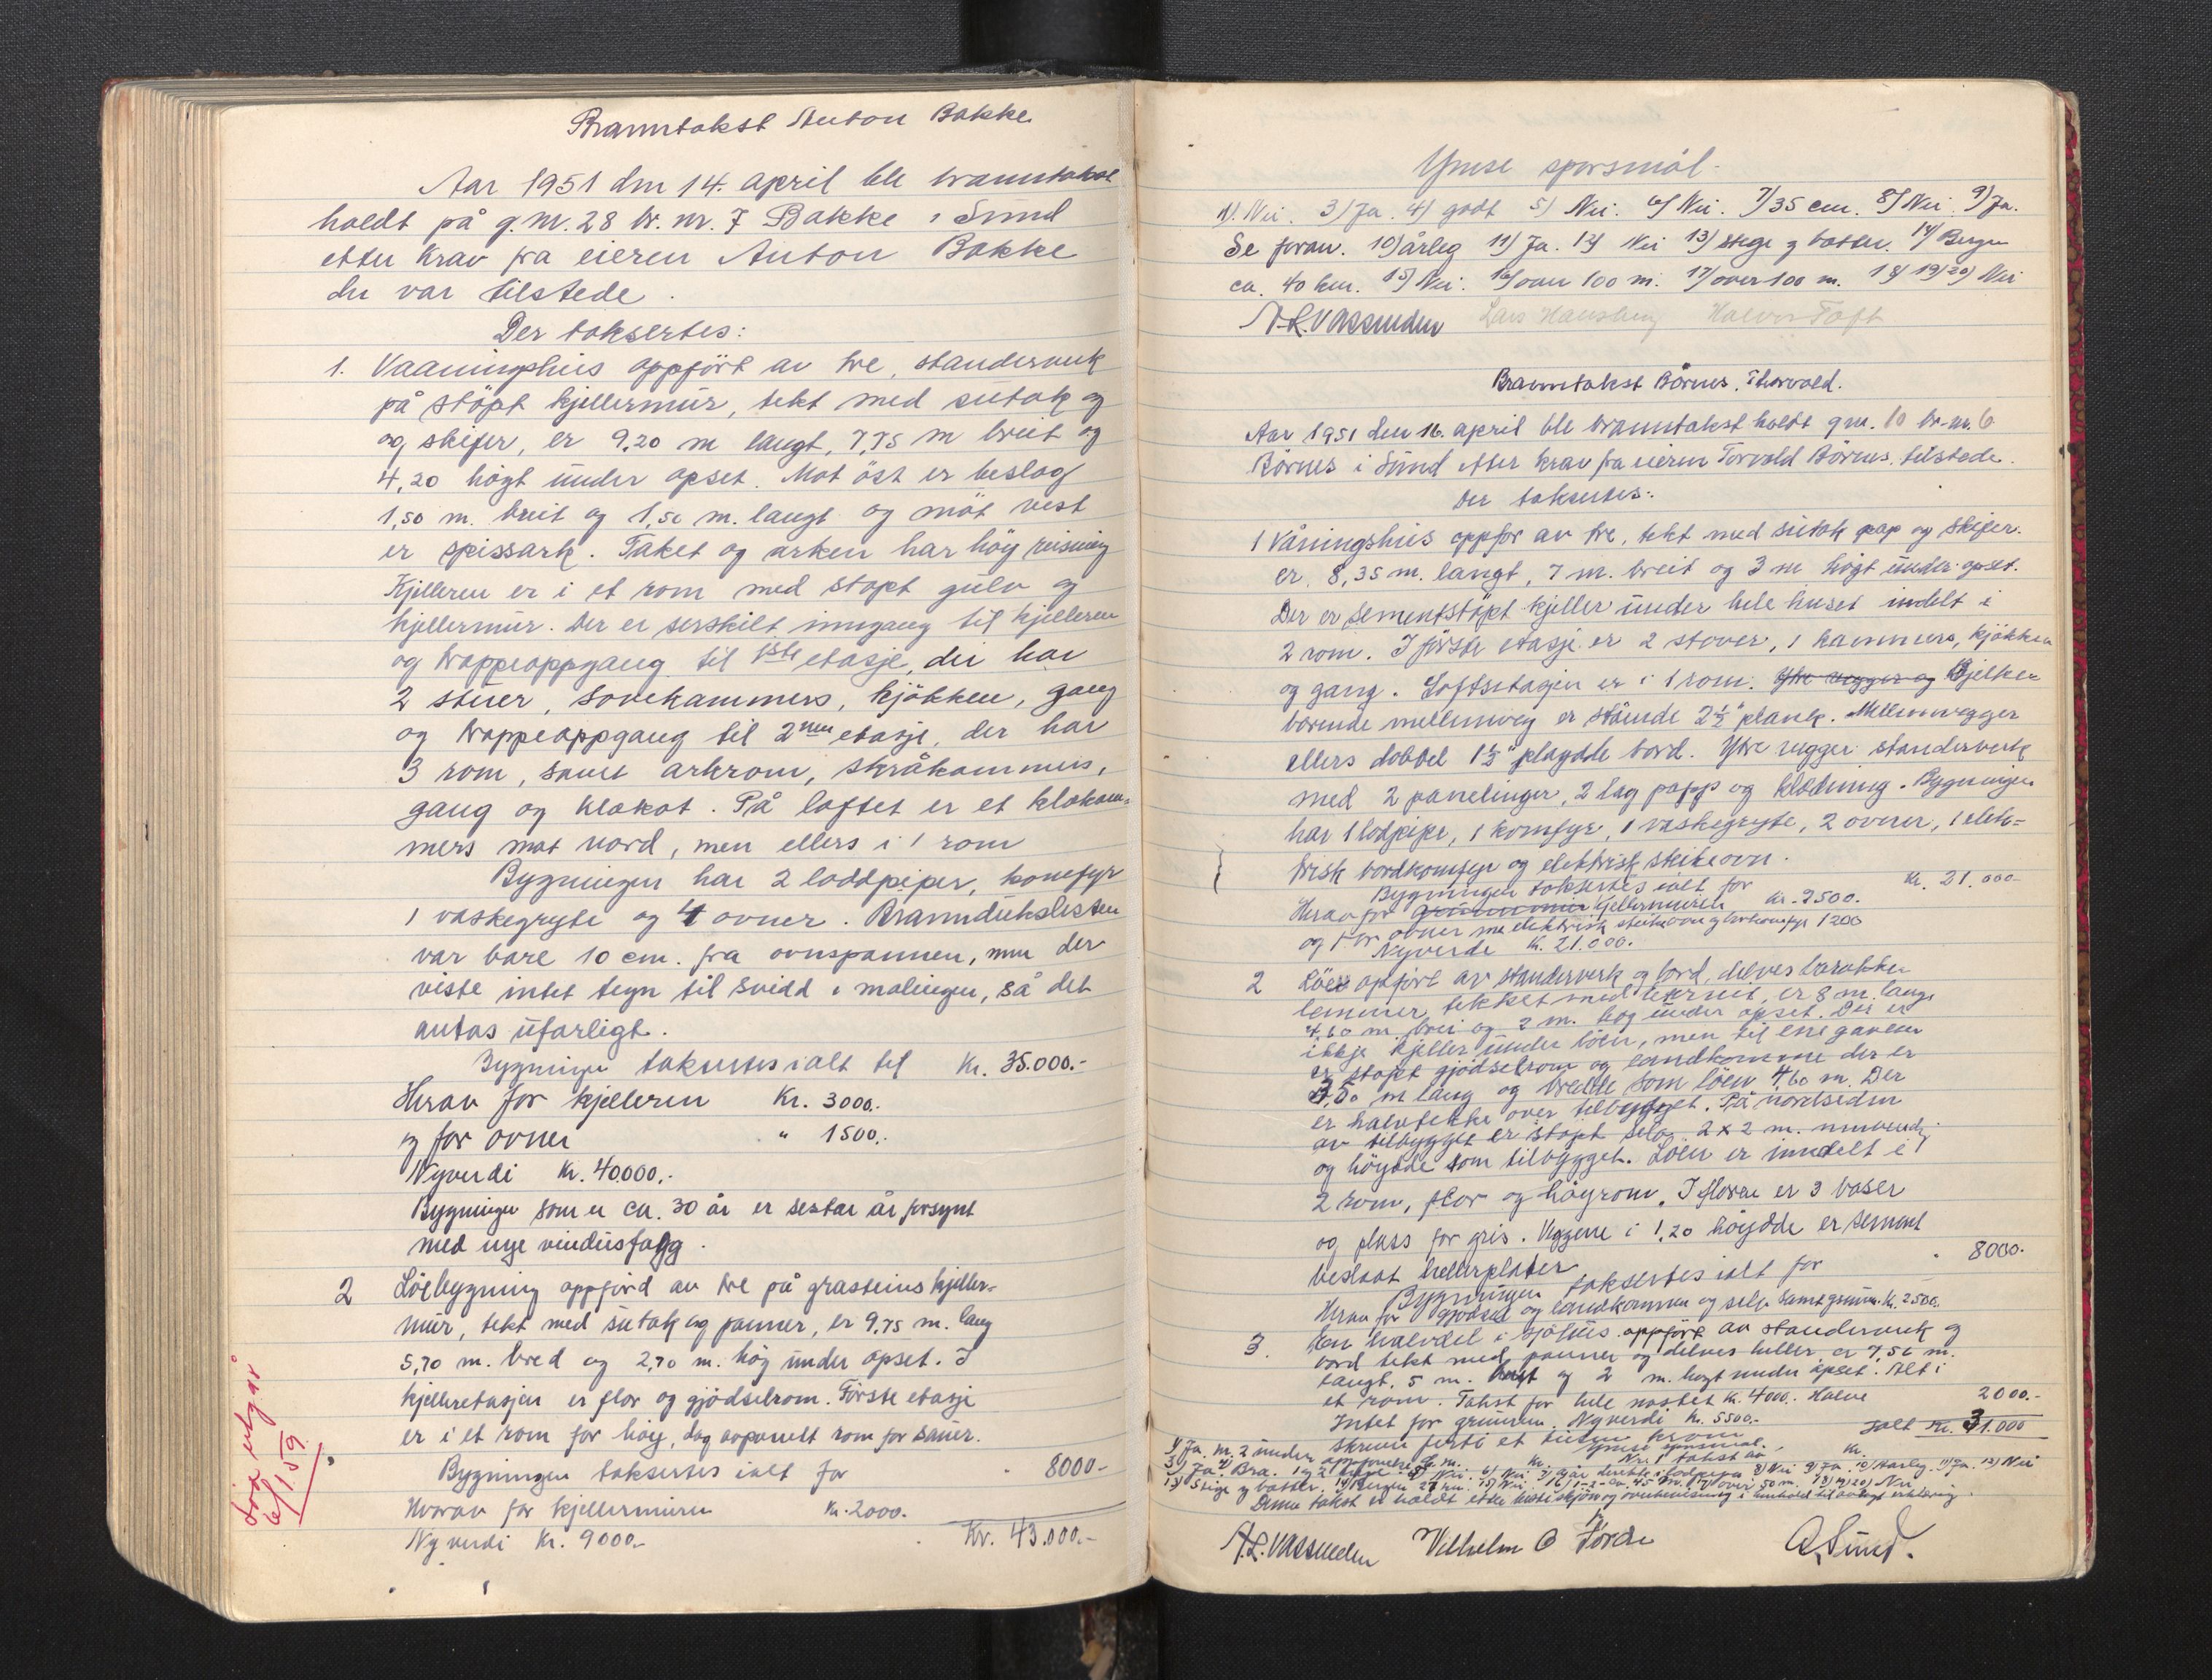 Branntakst Anton Bakke
Aar 1951 den 14. april ble branntakst
holdt på g.nr. 28 br. nr. 7 Bakke i Sund
etter krav fra eieren Anton Bakke
der var tilstede.
Der taksertes:
1. Vaaningshus oppført av tre, standerverk
på støpt kjellermur, tekt med sutak og
og skifer, er 9,20 m langt, 7,75 m breit og
4,20 högt under opset. Mot öst er beslag
1,50 m. breit og 1,50 m. langt og mot vest
er spissark. Taket og arken har höy reisning
Kjelleren er i et rom med stöpt gulv og
kjellermur. Der er serskilt inngang til kjelleren
og trappeoppgang til 1ste etasje, der har
2 stuer, sovekammers, kjökken, gang
og trappeoppgang til 2nen etasje, der har
3 rom, samt arkrom, skråkammers,
gang og klokot. På loftet er et klækam=
mers mot nord, men ellers i 1 rom
Bygningen har 2 loddpiper, komfyr
1 vaskegryte og 4 ovner. Brannduksliste
var bare 10 cm. fra ovnspannen, men der
viste intet tegn til svidd i malingen, så det
antas ufarligt.
Bygningen taksertes ialt til Kr. 35.000.-
Herav for kjelleren Kr. 3000.-
og for ovner " 1500.-
Nyverdi Kr. 40000.-
Bygningen som er ca. 30 år er sestar år forsynt
med nye vindusfagg.
2 Löebygning oppförd av tre på grasteins kjeller-
mur, tekt med sutak og panner, er 9,75 m. lang
5,70 m. bred og 2,70 m. hög under opset. I
kjelleretasjen er flor og gjödselrom. Förste etasje
er i et rom for höy, dog avpanelt rom for sauer.
Bygningen taksertes ialt for 8000-
Hvorav for kjellermuren Kr. 2000.
Nyverdi Kr. 9000.- Kr. 43.000.-
6/1.59
Ymse spørsmål.
1) Nei. 3) Ja. 4) godt 5) Nei. 6) Nei. 7) 35 cm. 8) Nei. 9) Ja.
Se foran. 10) årleg 11) Ja. 12) Nei 13) Stege og bøtter. 14) Bergen
ca. 40 km. 15) Nei. 16) over 100 m. 17) over 100 m. 18) 19) 20) Nei
A.L. Vassenden Lars Hausberg Halvor Toft
Branntakst Börnes, Thorvald.
Aar 1951 den 16. april ble branntakst holdt gnr. 10 br.nr. 6
Börnes i Sund etter krav fra eieren Torvald Börnes tilstede.
Der taksertes:
1 Våningshus oppför av tre, tekt med sutak pap og skifer.
er 8,35 m. langt, 7 m. breit og 3 m högt under opset.
Der er sementstöpt kjeller under hele huset indelt i
2 rom. I förste etasje er 2 stover, 1 kammers, kjökken
og gang. Loftsetagen er i 1 rom. Ytre vegger og Bjelker
bærende mellemveg er stående 2½" plank. Mellemvegger
ellers dobbel 1½" pløgde bord. Ytre vegger standerverk
med 2 panelinger, 2 lag papp og klædning. Bygningen
har 1 lodpipe, 1 komfyr, 1 vaskegryte, 2 ovner, 1 elek=
trisk bordkomfyr og elektrisk steikeovn.
Bygningen taksertes ialt for Kr. 21.000-
Herav for grunnmur kjellermuren Kr. 2500.
og for ovner m elektrisk steikeovn og bordkomfyr 1200
Nyverdi Kr. 21.000.
2 Löe oppfört av standerverk og bord, delvis barakke
lemmer, tekket med eternit, er 8 m. lang,
4,60 m. brei og 2 m. hög under opset. Der er
ikkje kjeller under löen, men til ene gavlen
er stöpt gjödselrom og landkomme der er
3,50 m lang og bredde som löen 4,60 m. Der
er halvtekke over tilbygget. På nordsiden
av tilbygget er stöpt selo 2 x 2 m. innvendig
og höydde som tilbygget. Löen er inndelt i
2 rom, flor og höyrom. I floren er 3 baser
og plass for gris. Veggene i 1,20 höydde er sement
beslaat hellerplater
Bygningen taksertes ialt for " 8000.
Herav for gjödsel og landkommen og selo samt grunn Kr. 2500.
3. En halvdel i sjöhus oppfört av standerverk og
bord tekt med panner og delves heller er 7,50 m.
langt, 5 m. breit og 2 m. högt under opset. Alt i
et rom. Takst for hele nøstet Kr. 4000. Halve 2000.-
Intet for grunnen. Nyverdi Kr. 5500.- Ialt Kr. 31.000
Ymse spörsmål.
Denne takst er holdt etter beste skjönn og overbevisning i henhold til avlagt erklæring.
A.L. Vassenden Vilhelm O Førde O. Sund.